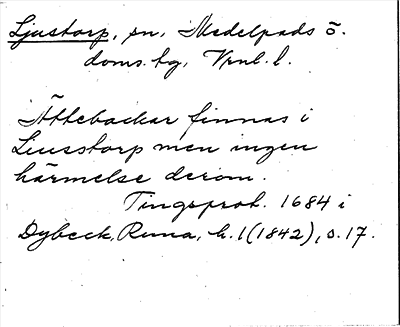 Ljustorp, sn, Medelpads ö.
doms. tg, Vrnl. l.
Ättebackar finnas i
Liusstorp men ingen
härmelse derom.
Tingsprot. 1684 i
Dybeck, Runa, h. 1(1842), s. 17.